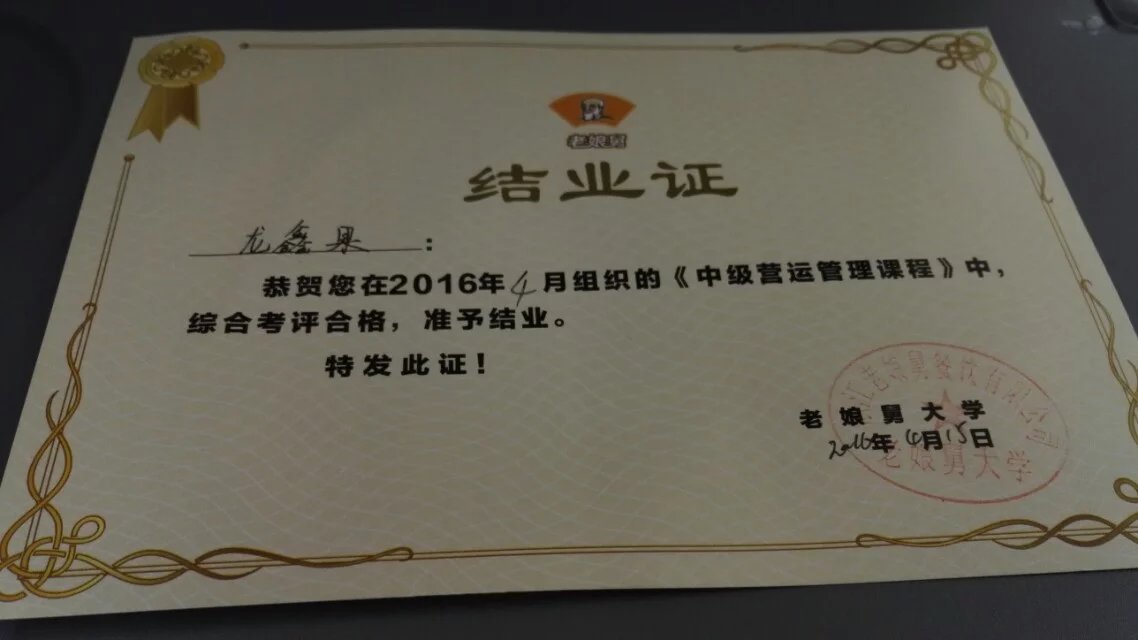 老娘舅
结业证
龙鑫果：
恭贺您在2016年4月组织的《中级营运管理课程》中，
综合考评合格，准予结业。
特发此证！
老娘舅大学
2016年4月15日
江老娘舅餐饮有限公司
老娘舅大学